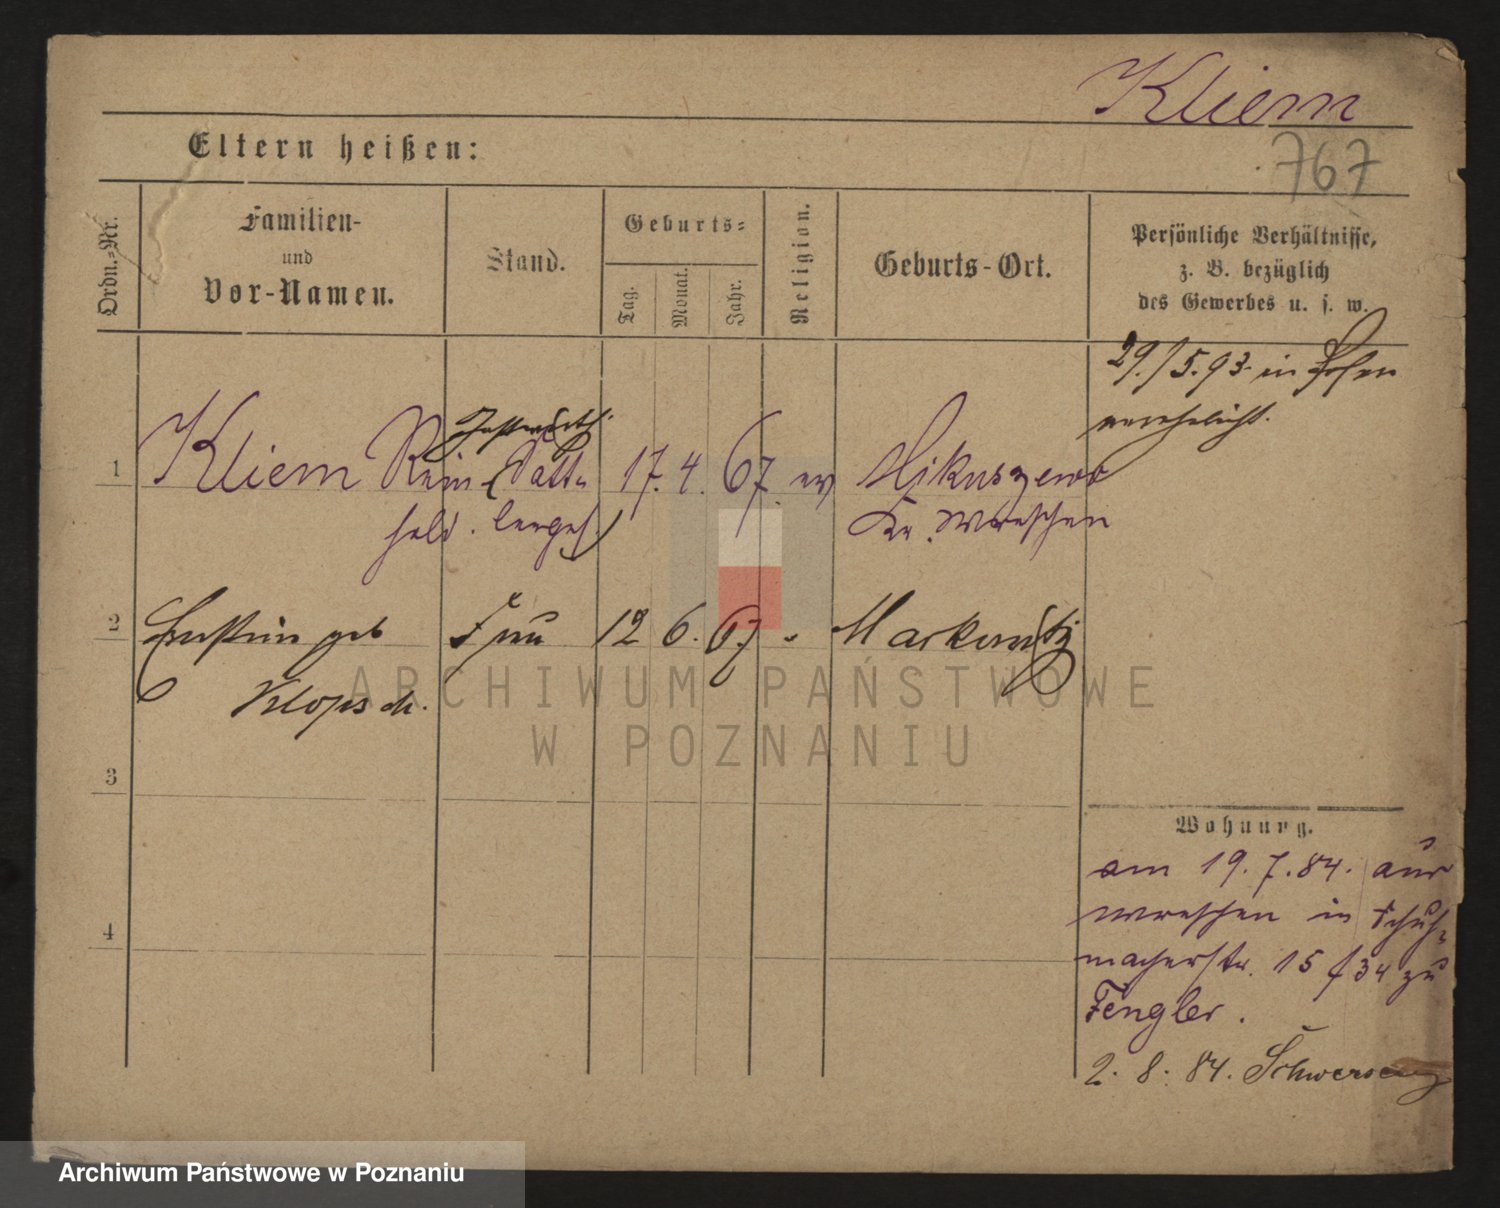 Kliem
767
Eltern heißen:
Ordn.-Nr.
Familien-
und
Vor-Namen.
Stand.
Geburts-
Tag.
Monat.
Jahr.
Religion.
Geburts-Ort.
Persönliche Verhältnisse,
z. B. bezüglich
des Gewerbes u. s. w.
29./5.93 in Posen
verehelicht.
1
Kliem Rein- Sattler 17. 4. 67. ev Mikuszewo
hold Kr. Wreschen
2
Ernstine geb Frau 12 6. 67 " Markowitz
Klopsch.
ARCHIWUM PAŃSTWOWE
W POZNANIU
3
4
Wohnung.
am 19.7.84. aus
Wreschen in Schuh-
macherstr. 15 /34 zu
Fengler.
2. 8. 84. Schwersenz
Archiwum Państwowe w Poznaniu